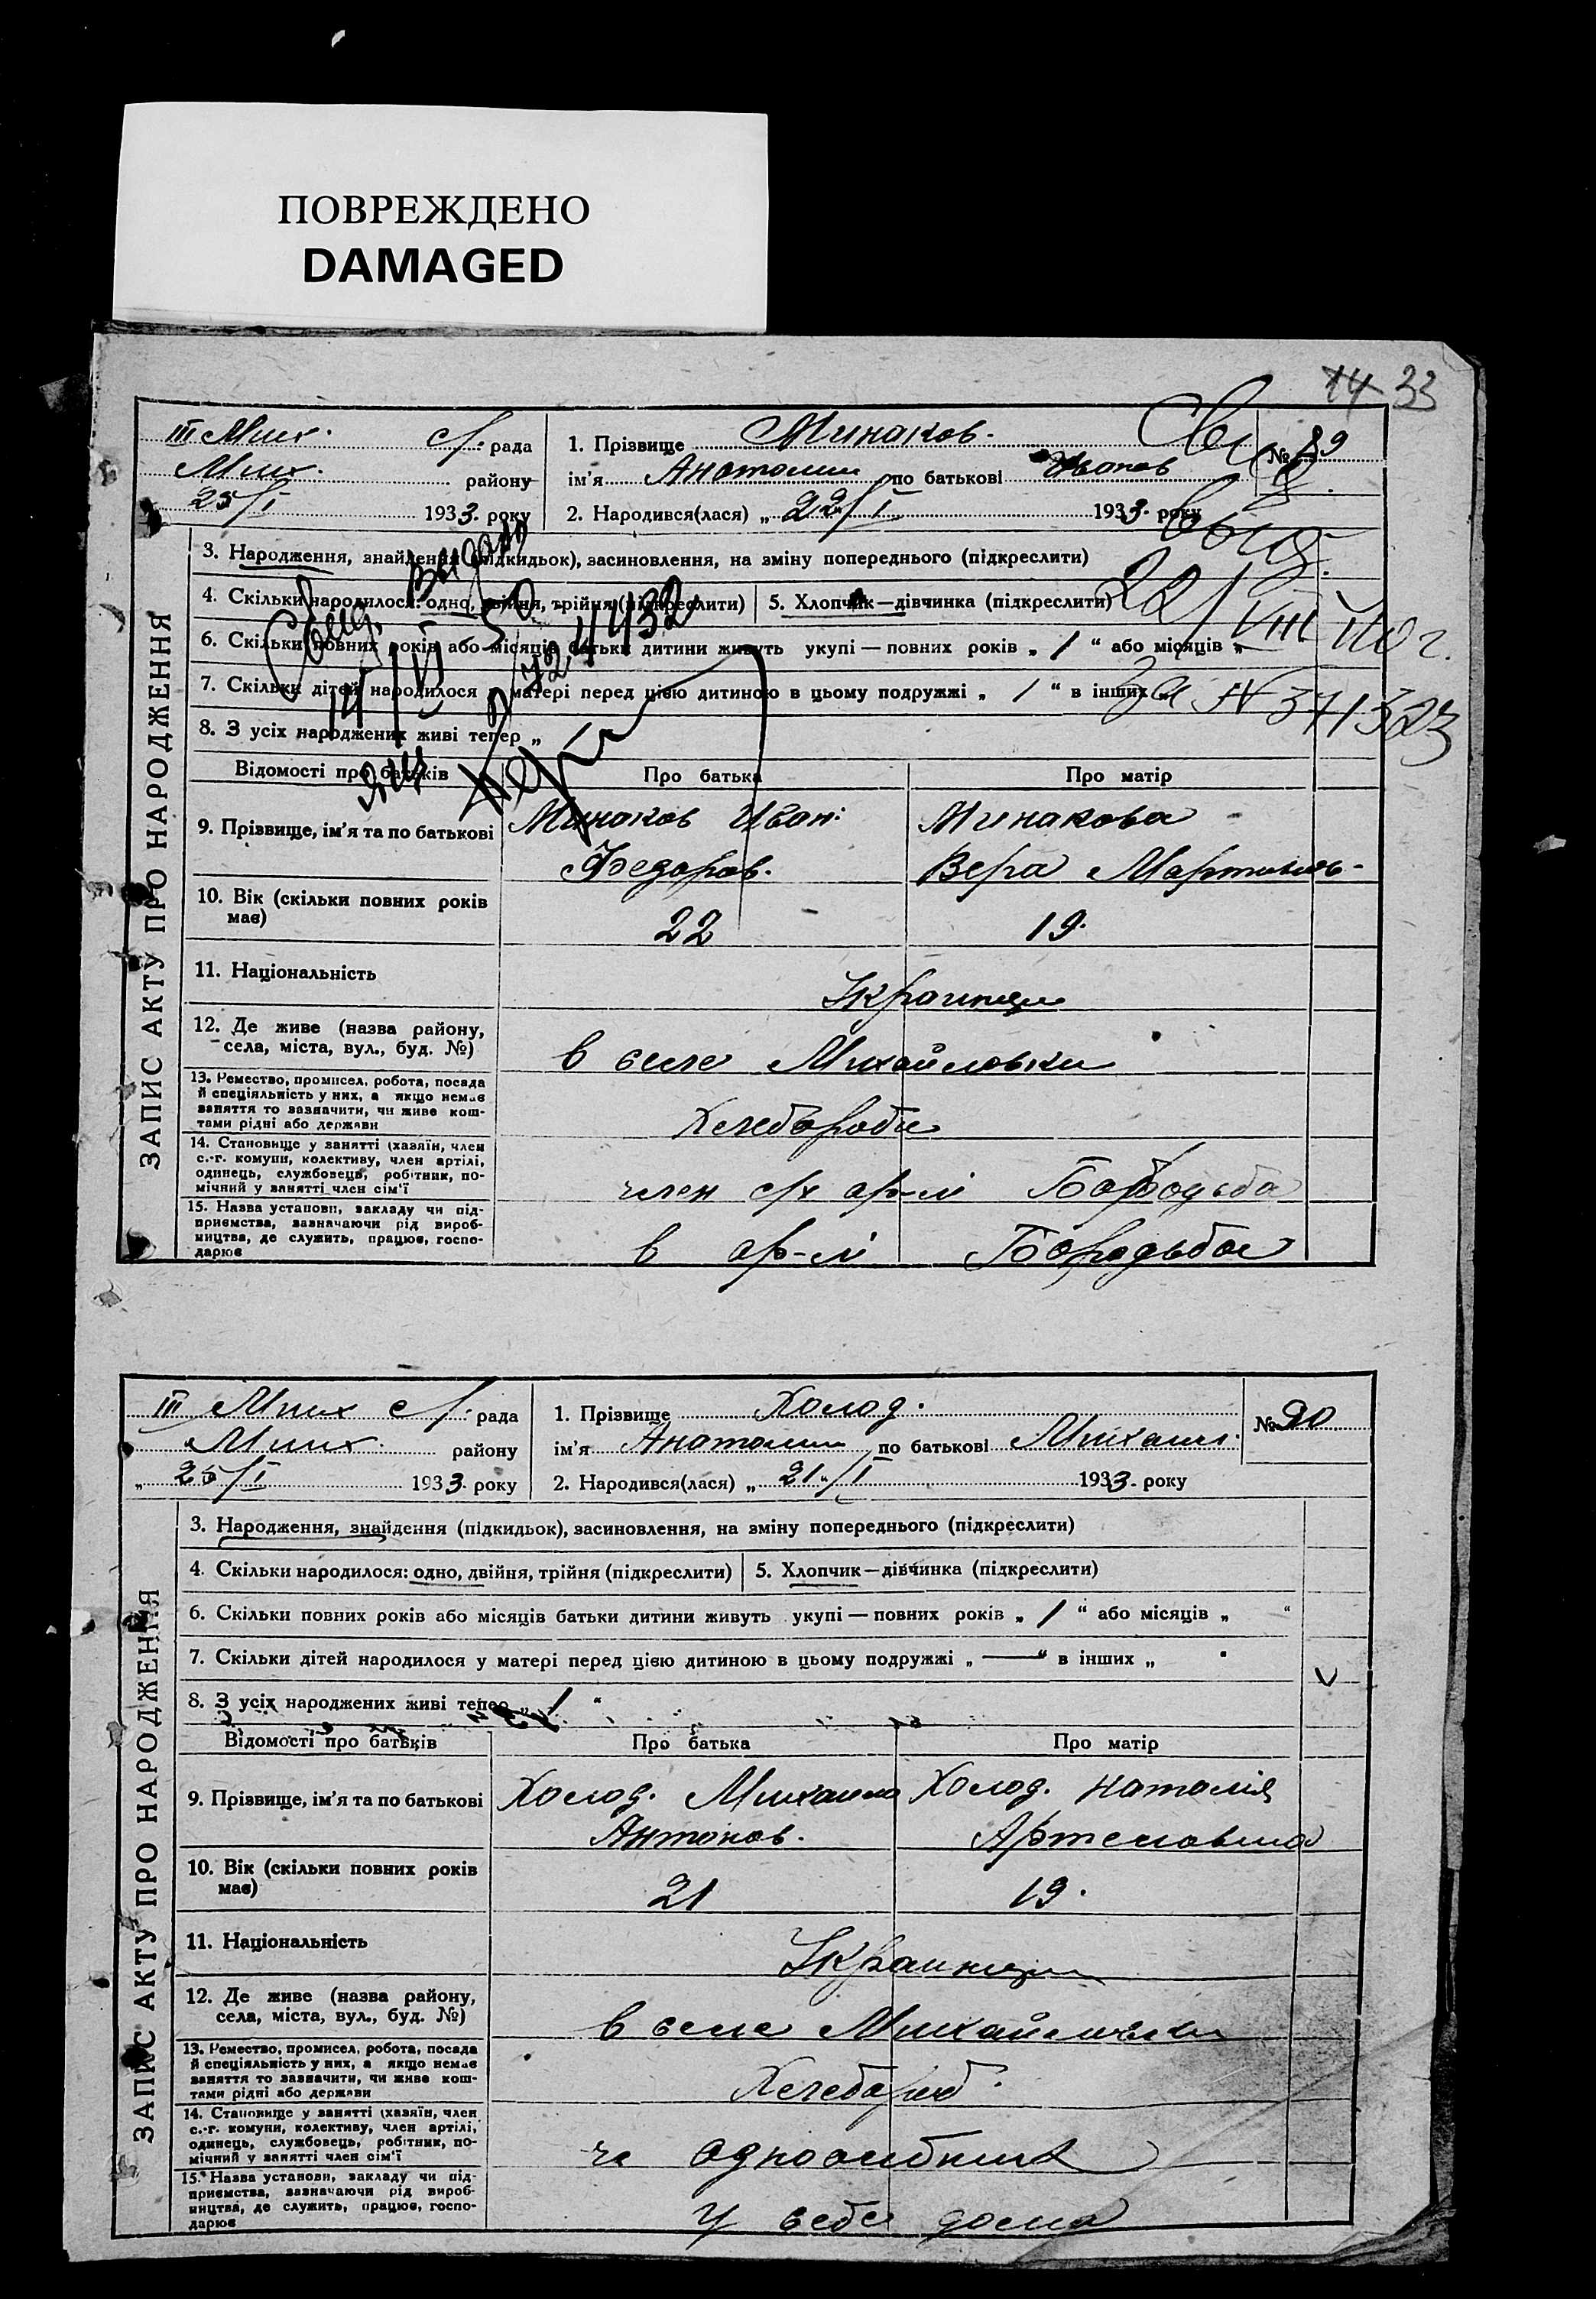 ПОВРЕЖДЕНО
DAMAGED
14 33
ЗАПИС АКТУ ПРО НАРОДЖЕННЯ
III Мих. с/. рада
Мих. району
25/I 1933. року
1. Прізвище Минаков.
ім'я Анатолии по батькові Иванов
2. Народився(лася) „ 22/I 1933. року
№ 89
Св
выд.
22/VIII 40 г.
за № 371323
3. Народження, знайдення (підкидьок), засиновлення, на зміну попереднього (підкреслити)
4. Скільки народилося: одно, двійня, трійня (підкреслити) 5. Хлопчик—дівчинка (підкреслити)
6. Скільки повних років або місяців батьки дитини живуть укупі — повних років „ 1 “ або місяців „
7. Скільки дітей народилося у матері перед цією дитиною в цьому подружжі „ 1 “ в інших
8. З усіх народжених живі тепер „
Свид. выдано
Відомості про батьків Про батька Про матір
9. Прізвище, ім'я та по батькові Минаков Иван: Минакова
Федоров. Вера
10. Вік (скільки повних років має) 22 19.
11. Національність Украинцы
12. Де живе (назва району, села, міста, вул., буд. №) в селе Михайловки
13. Ремество, промисел, робота, посада й спеціяльність у них, а якщо немає заняття то зазначити, чи живе коштами рідні або держави Хлебороби
14. Становище у занятті (хазяїн, член с.-г. комуни, колективу, член артілі, одинець, службовець, робітник, помічний у занятті член сім'ї член с/х ар-лі Бородьба
15. Назва установи, закладу чи підприємства, зазначаючи рід виробництва, де служить, працює, господарює в ар-лі Бородьба
ЗАПИС АКТУ ПРО НАРОДЖЕННЯ
III Мих с/. рада
Мих. району
„ 25/I 1933. року
1. Прізвище Холод.
ім'я Анатолии по батькові Михаил.
2. Народився(лася) „ 21“/I 1933. року
№ 90
3. Народження, знайдення (підкидьок), засиновлення, на зміну попереднього (підкреслити)
4. Скільки народилося: одно, двійня, трійня (підкреслити) 5. Хлопчик—дівчинка (підкреслити)
6. Скільки повних років або місяців батьки дитини живуть укупі — повних років „ 1 “ або місяців „ “
7. Скільки дітей народилося у матері перед цією дитиною в цьому подружжі „ — “ в інших „
8. З усіх народжених живі тепер „ 1 “
Відомості про батьків Про батька Про матір
9. Прізвище, ім'я та по батькові Холод. Михаило Холод. Наталія
Антонов. Артемовна
10. Вік (скільки повних років має) 21 19.
11. Національність Украинцы
12. Де живе (назва району, села, міста, вул., буд. №) в селе Михайловки
13. Ремество, промисел, робота, посада й спеціяльність у них, а якщо немає заняття то зазначити, чи живе коштами рідні або держави Хлебороб.
14. Становище у занятті (хазяїн, член с.-г. комуни, колективу, член артілі, одинець, службовець, робітник, помічний у занятті член сім'ї одноосибник
15. Назва установи, закладу чи підприємства, зазначаючи рід виробництва, де служить, працює, господарює У себе дома